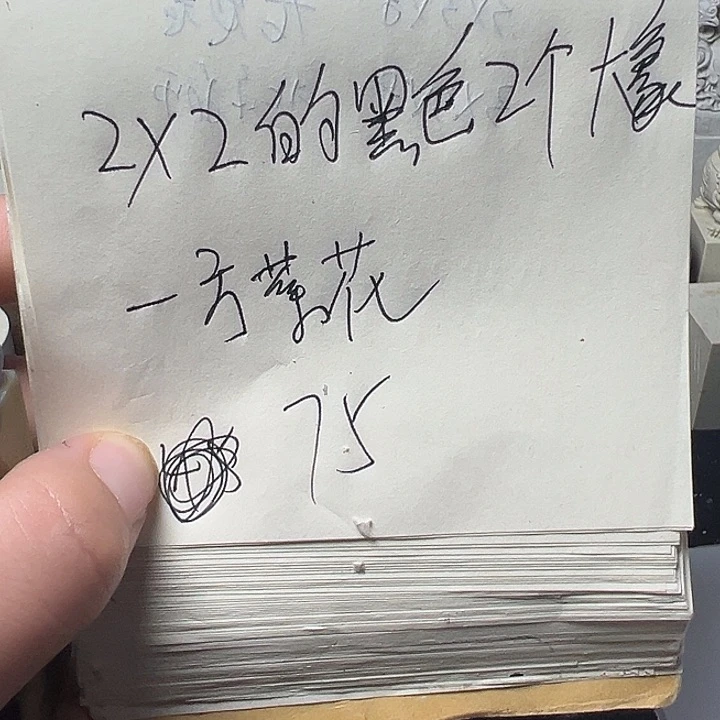 2×2的黑色2个大象
一号菊花
75